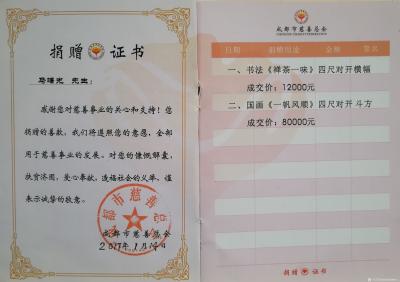 捐赠证书
先生：
感谢您对慈善事业的关心和支持！您
捐赠的善款，我们将遵照您的意愿，全部
用于慈善事业的发展。对您的慷慨解囊，
扶贫济困，爱心奉献，造福社会的义举，谨
表示诚挚的敬意。
成都市慈善总会
2017年1月14日
成都市慈善总会
成都市慈善总会
日期 捐赠用途 金额 签名
一、书法《禅茶一味》四尺对开横幅
成交价：12000元
二、国画《一帆风顺》四尺对开斗方
成交价：80000元
捐赠证书